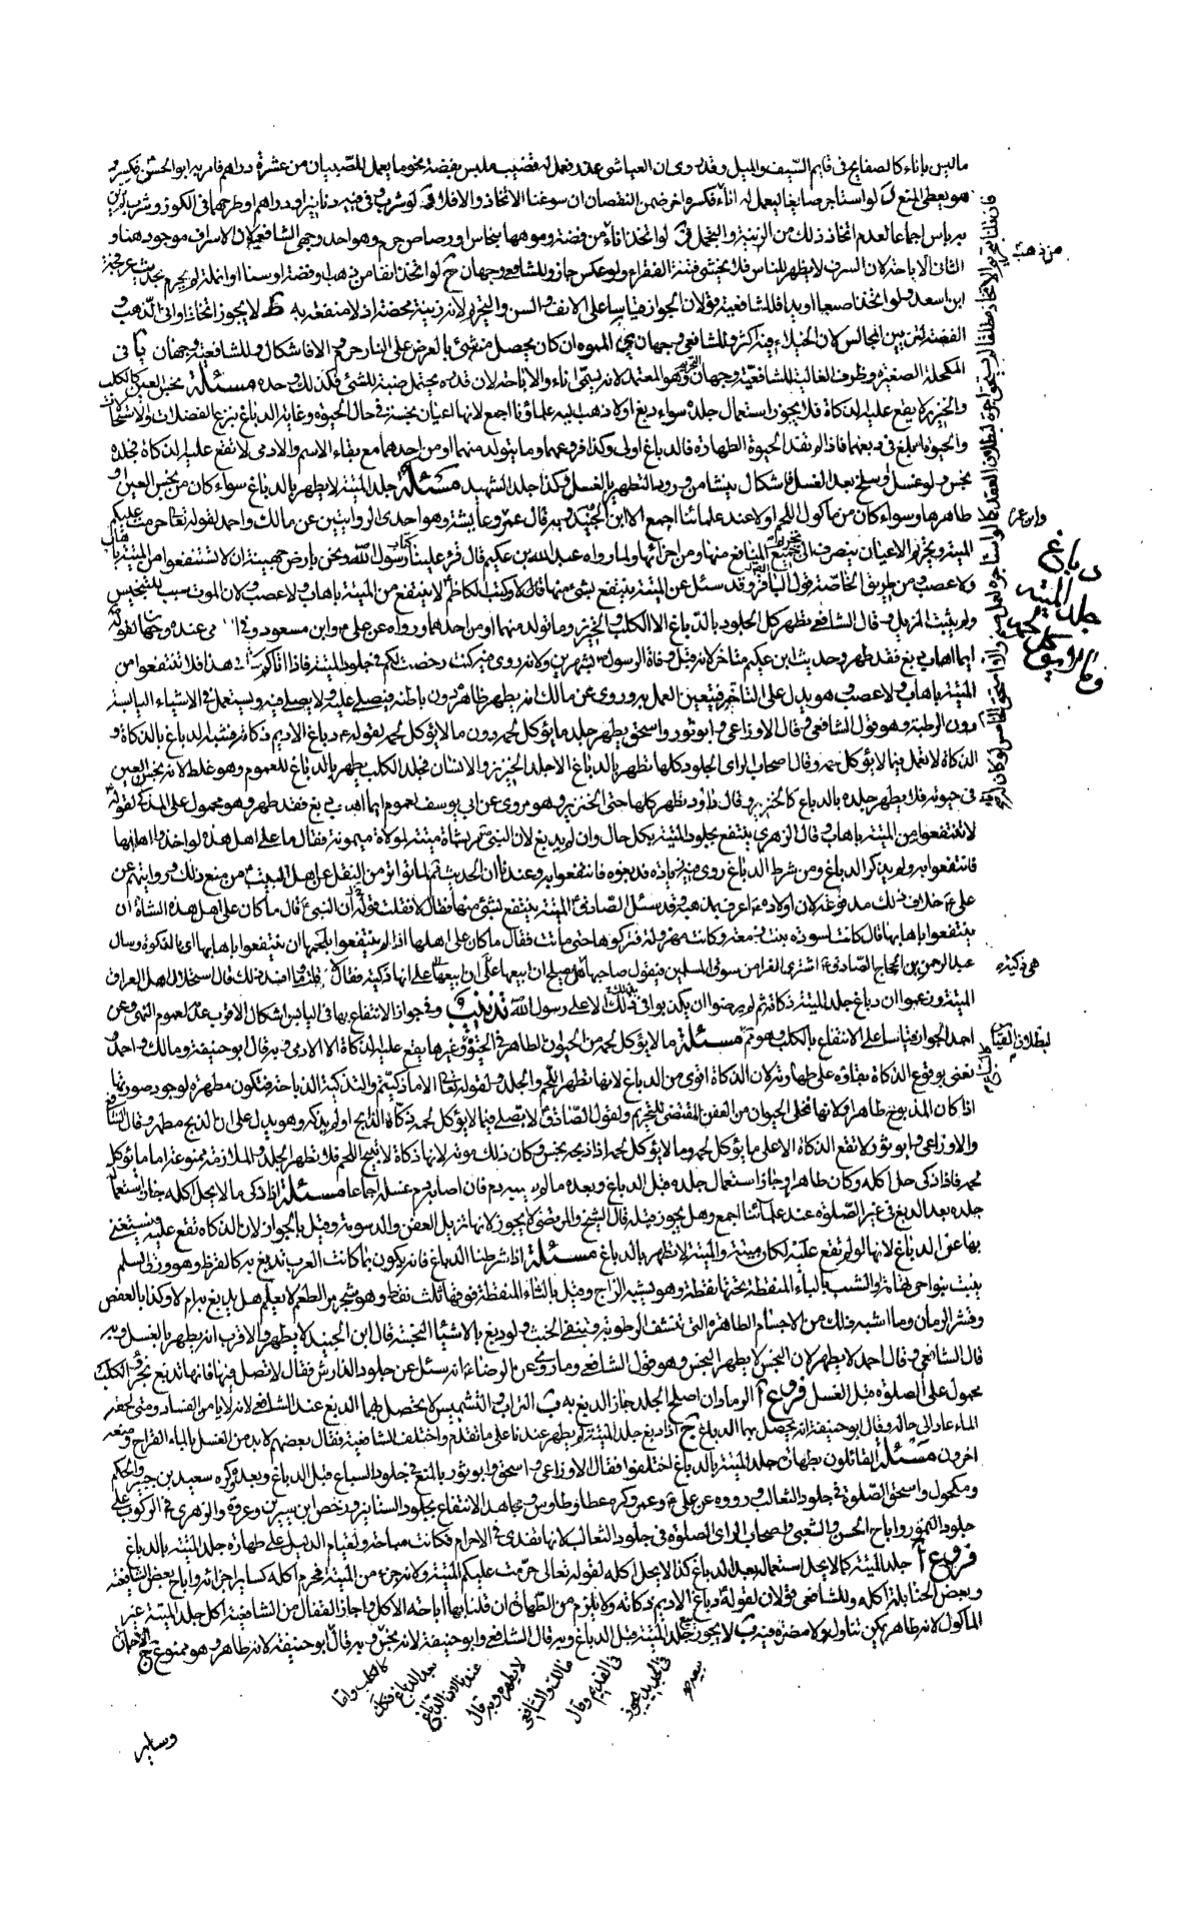 ما ليس باناء كالصفايح في قايم السيف والميل وقد روى ان العباسي عذر فعمل له قضيب ملبس بفضة نحو ما يعمل للصبيان من عشرة دراهم فامر به ابو الحسن فكسر
هو يعطى المنع لو استاجر صايغا ليعمل له اناء فكسره اخر ضمن النقصان ان سوغنا الاتخاذ والا فلا لو شرب وفي فيه دنانير او دراهم او طرحها في الكوز وشرب لم يكن
به باس اجماعا لعدم اتخاذ ذلك من الزينة والتجمل لو اتخذ اناء من فضة وموهها بنحاس او رصاص حرم وهو احد وجهي الشافعي لان الاسراف موجود هنا و
الثاني الاباحة لان السرف لا يظهر للناس فلا يخشى فتنة الفقراء ولو عكس جاز وللشافعي وجهان لو اتخذ انفا من ذهب او فضة او سنا او انملة لم يحرم لحديث عرفجة
ابن اسعد ولو اتخذ اصبعا او يدا فللشافعية قولان الجواز قياسا على الانف والسن والتحريم لانه زينة محضة اذ لا منفعة به لا يجوز اتخاذ اواني الذهب و
الفضة لتزيين المجالس لان الخيلاء فيه اكثر وللشافعي وجهان المموه ان كان يحصل منه شئ بالعرض على النار حرم والا فاشكال وللشافعية وجهان في
المكحلة الصغيرة وظرف الغالية للشافعية وجهان التحريم وهو المعتمد لانه يسمى اناء والاباحة لان قدره يحتمل ضبة للشئ فكذلك وحده مسئلة نجس العين كالكلب
والخنزير لا يقع عليه الذكاة فلا يجوز استعمال جلده سواء دبغ او لا ذهب اليه علماؤنا اجمع لانها اعيان نجسة في حال الحيوة وغاية الدباغ نزع الفضلات والاستحالات
والحيوة ابلغ في دفعها فاذا لم تفد الحيوة الطهارة فالدباغ اولى وكذا فروعهما وما يتولد منهما او من احدهما مع بقاء الاسم والادمي لا تقع عليه الذكاة فجلده
نجس ولو غسل وسلخ بعد الغسل فاشكال ينشا من ورود التطهير بالغسل وكذا جلد الشهيد مسئلة جلد الميتة لا يطهر بالدباغ سواء كان من نجس العين او
طاهرها وسواء كان من ماكول اللحم او لا عند علمائنا اجمع الا ابن الجنيد وبه قال عمر وعايشة وهو احدى الروايتين عن مالك واحمد لقوله تعالى حرمت عليكم
الميتة وتحريم الاعيان ينصرف الى تحريم جميع المنافع منها ومن اجزائها ولما رواه عبد الله بن عكيم قال قرئ علينا كتاب رسول الله ونحن بارض جهينة ان لا تنتفعوا من الميتة باهاب
ولا عصب ومن طريق الخاصة قول الباقر وقد سئل عن الميتة ينتفع بشئ منها قال لا وكتب الكاظم لا ينتفع من الميتة باهاب ولا عصب ولان الموت سبب للتنجيس
ولم يثبت المزيل وقال الشافعي يطهر كل الجلود بالدباغ الا الكلب والخنزير وما تولد منهما او من احدهما ورواه عن علي وابن مسعود وفي عنده وجهان لقوله
ايما اهاب دبغ فقد طهر وحديث ابن عكيم متاخر لانه قبل وفاة الرسول بشهرين ولانه روى فيه كنت رخصت لكم في جلود الميتة فاذا اتاكم هذا فلا تنتفعوا من
الميتة باهاب ولا عصب وهو يدل على التاخر فيتعين العمل به وروى عن مالك انه يطهر ظاهره دون باطنه فيصلى عليه ولا يصلى فيه ويستعمل في الاشياء اليابسة
دون الرطبة وهو قول الشافعي وقال الاوزاعي وابو ثور واسحق يطهر جلد ما يؤكل لحمه دون ما لا يؤكل لحمه لقوله دباغ الاديم ذكاته فشبه الدباغ بالذكاة و
الذكاة لا تعمل فيما لا يؤكل لحمه وقال اصحاب الراى الجلود كلها تطهر بالدباغ الا جلد الخنزير والانسان فجلد الكلب يطهر بالدباغ للعموم وهو غلط لانه نجس العين
في حيوته فلا يطهر جلده بالدباغ كالخنزير وقال داود تطهر كلها حتى الخنزير وهو مروي عن ابي يوسف لعموم ايما اهاب دبغ فقد طهر وهو محمول على المذكى لقوله
لا تنتفعوا من الميتة باهاب وقال الزهري ينتفع بجلود الميتة بكل حال وان لم يدبغ لان النبي مر بشاة ميتة لمولاة ميمونة فقال ما على اهل هذه لو اخذوا اهابها
فانتفعوا به ولم يذكر الدباغ ومن شرط الدباغ روى فيه فدبغوه فانتفعوا به وعندنا ان الحديث لم للتواتر من النقل عن اهل البيت من منع ذلك وروايتهم عن
علي خلاف ذلك مدفوعة لان اولاده اعرف بمذهبه وقد سئل الصادق الميتة ينتفع بشئ منها فقال لا فقلت فقوله ان النبي قال ما كان على اهل هذه الشاة ان
ينتفعوا باهابها قال كانت لسودة بنت زمعة وكانت مهزولة فتركوها حتى ماتت فقال ما كان على اهلها اذا لم ينتفعوا بلحمها ان ينتفعوا باهابها اى بالذكوة وسال
عبد الرحمن بن الحجاج الصادق اشترى الفرا من سوق المسلمين فيقول صاحبها هي ذكية هل يصلح ان ابيعها على انها ذكية فقال لا قلت وما افسد ذلك قال استحلال اهل العراق
الميتة وزعموا ان دباغ جلد الميتة ذكاته ثم لم يرضوا ان يكذبوا في ذلك الا على رسول الله تذنيب وفي جواز الانتفاع بها في اليابس اشكال الاقرب عدمه لعموم النهي وعن
احمد الجواز قياسا على الانتفاع بالكلب وهو ثم مسئلة ما لا يؤكل لحمه من الحيوان الطاهر في الحيوة وغيرها يقع عليه الذكاة الا الادمي وبه قال ابو حنيفة ومالك واحمد و
نعني بوقوع الذكاة بقاؤه على طهارته لان الذكاة اقوى من الدباغ لانها تطهر اللحم والجلد ولقوله تعالى الا ما ذكيتم والتذكية الذباحة فتكون مطهرة لوجود صورتها
اذا كان المذبوح طاهرا ولانها تخلى الحيوان من العفن المقتضي للتحريم ولقول الصادق لا يصلى فيما لا يؤكل لحمه ذكاه الذبح او لم يذكه وهو يدل على ان الذبح مطهر وقال الشافعي
والاوزاعي وابو ثور لا تقع الذكاة الا على ما يؤكل لحمه وما لا يؤكل لحمه اذا ذبحه نجس وكان ذلك موته لانها ذكاة لا تبيح اللحم فلا تطهر الجلد والملازمة ممنوعة اما ما يؤكل
لحمه فاذا ذكى حل اكله وكان طاهرا وجاز استعمال جلده قبل الدباغ وبعده ما لم يصبه دم فان اصابه دم غسله اجماعا مسئلة اذا ذكى ما لا يحل اكله جاز استعمال
جلده بعد الدبغ في غير الصلوة عند علمائنا اجمع وهل يجوز قبله قال الشيخ والمرتضى لا يجوز لانها تزيل العفن والدسومة وقيل بالجواز لان الذكاة تقع عليه ويستغنى
بها عن الدباغ لانها لو لم تقع عليه لكان ميتة والميتة لا تطهر بالدباغ مسئلة اذا شرطنا الدباغ فانه يكون بما كانت العرب تدبغ به كالقرظ وهو ورق السلم
ينبت بنواحي تهامة والشب بالباء المنقطة تحتها نقطة وهو يشبه الزاج وقيل بالثاء المنقطة فوقها ثلث نقط وهو شجر مر الطعم لا يعلم هل يدبغ به ام لا وكذا بالعفص
وقشر الرمان وما اشبه ذلك من الاجسام الطاهرة التي تنشف الرطوبة وتنفي الخبث ولو دبغ بالاشياء النجسة قال ابن الجنيد لا يطهر والاقرب انه يطهر بالغسل وبه
قال الشافعي وقال احمد لا يطهر لان النجس لا يطهر النجس وهو قول الشافعي وما روى عن الرضا انه سئل عن جلود الدارش فقال لا تصل فيها فانها تدبغ بخرؤ الكلاب
محمول على الصلوة قبل الغسل فروع ا الرماد ان اصلح الجلد جاز الدبغ به ب التراب والتشميس لا يحصل بهما الدبغ عند الشافعي لانه لا يامن الفساد ومتى لحقه
الماء عاد الى حاله وقال ابو حنيفة انه يحصل بهما الدباغ ج اذا دبغ جلد الميتة لم يطهر عندنا على ما تقدم واختلف الشافعية فقال بعضهم لا بد من الغسل بالماء القراح ومنعه
اخرون مسئلة القائلون بطهارة جلد الميتة بالدباغ اختلفوا فقال الاوزاعي واسحق وابو ثور بالمنع في جلود السباع قبل الدباغ وبعده وكره سعيد بن جبير والحكم
ومكحول واسحق الصلوة في جلود الثعالب ورووه عن علي وعمر وكره عطا وطاوس ومجاهد الانتفاع بجلود السنانير ورخص ابن سيرين وعروة والزهري في الركوب على
جلود النمور واباح الحسن والشعبي واصحاب الراى الصلوة في جلود الثعالب لانها تفدى في الاحرام فكانت مباحة ولقيام الدليل على طهارة جلد الميتة بالدباغ
فروع ا جلد الميتة كما لا يحل استعماله بعد الدباغ كذا لا يحل اكله لقوله تعالى حرمت عليكم الميتة ولانه جزء من الميتة فحرم اكله كساير اجزائه واباح بعض الشافعية
وبعض الحنابلة اكله وللشافعي قولان لقوله دباغ الاديم ذكاته ولا يلزم من الطهارة ان قلنا بها اباحة الاكل واجاز القفال من الشافعية اكل جلد الميتة غير
الماكول لانه طاهر يمكن تناوله ولا مضرة فيه ب لا يجوز بيع جلد الميتة قبل الدباغ وبه قال الشافعي وابو حنيفة لانه نجس وبه قال ابو حنيفة لانه طاهر وهو ممنوع ج
من ذهب
وابن عمر
دباغ جلد الميتة
هي ذكية
لبطلان القياس
بعده
في الجديد يجوز
في القديم وقال
مالك والشافعي
لا يطهر وبه قال
عندنا لان الدباغ
بعد الدباغ فكذلك
كالكلب واما
وساير